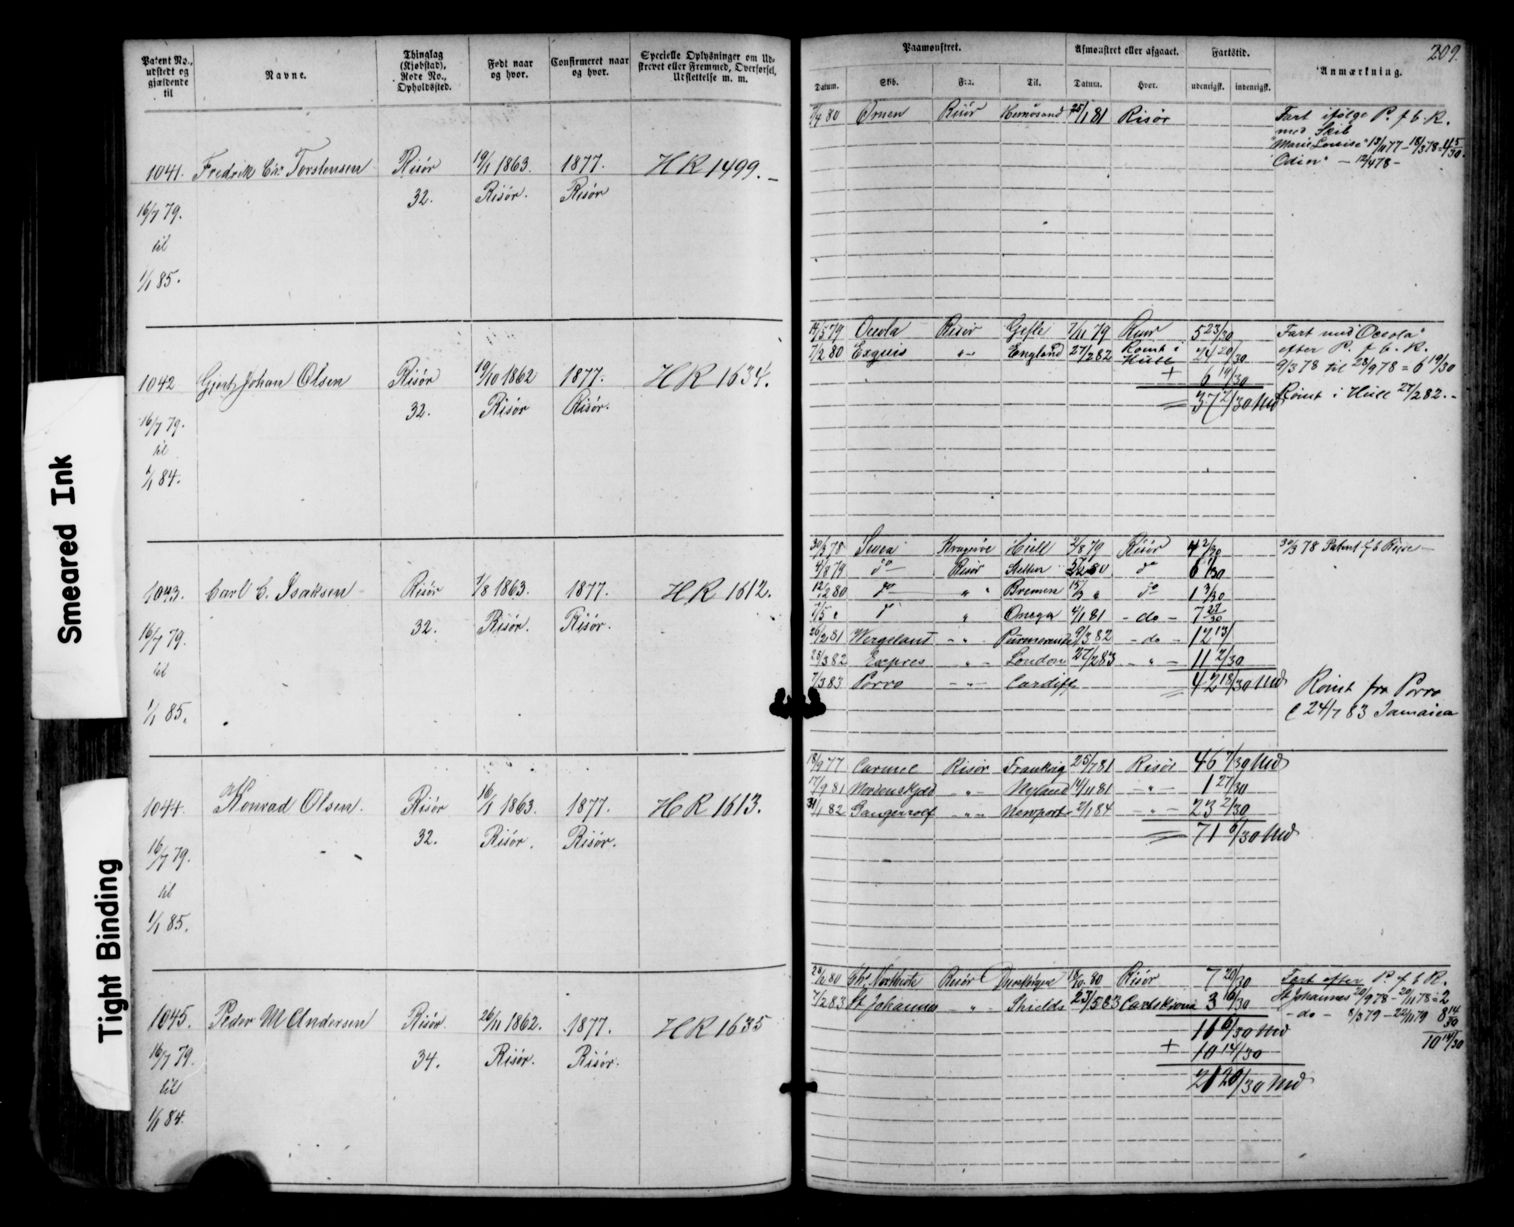 209.
Patent No., udstedt og gjældende til
Navne.
Thinglag (Kjøbstad), Rode No., Opholdssted.
Født naar og hvor.
Confirmeret naar og hvor.
Specielle Oplysninger om Udskrevet eller Fremmed, Overførsel, Udslettelse m. m.
Paamønstret.
Afmønstret eller afgaaet.
Fartstid.
Anmærkning.
Datum.
Skib.
Fra.
Til.
Datum.
Hvor.
udenrigsk.
indenrigsk.
1041. Fredrik Chr Torstensen Risør 19/1 1863. 1877. HR 1499. -
16/7 79. 32. Risør. Risør
til
1/1 85.
7/4 80 Ørnen Risør Hernøsand 25/1 81 Risør
Fart ifølge P. f b. R.
med Skib
"Marie Louise"
Odin"
1042 Gjert Johan Olsen Risør 19/10 1862 1877. HR 1634.
16/7 79. 32. Risør Risør.
til
1/1 84.
14/5 79 Oceola Risør Gefle 7/11 79 Risør 5 23/30
7/2 80 Exquis " - England 27/2 82 Rømt i Hull 24 20/30
+ 6 19/30
= 37 2/30 Md
Fart med "Oceola"
efter P. f b. R.
9/3 78 til 28/9 78 = 6 19/30
Rømt i Hull 27/2 82. -
1043. Carl C. Isaksen Risør 7/8 1863. 1877. HR 1612.
16/7 79. 32. Risør. Risør.
til
1/1 85.
30/3 78 Svea Kragerøe Hull 2/8 79 Risør 4 2/30
4/8 79 do Risør Stettin do 6 1/30
12/2 80 do " " Bremen 15/3 " do 1 3/30
7/5 " " Onega 4/1 81 - do - 7 27/30
26/2 81 Wergeland - " - 9/3 82 - do - 12 13/
28/3 82 Expres " - London 27/2 83 - " - 11 2/30
7/3 83 Porro - " - Cardiff = 42 18/30 Md
30/3 78 Patent f b Risør -
Rømt fra Porro
24/7 83 Jamaica
1044. Konrad Olsen. Risør 16/1 1863. 1877. HR 1613.
16/7 79. 32. Risør. Risør.
til
1/1 85.
18/9 77 Carmel Risør 25/7 81 Risør 46 7/30 Md
17/9 81 Nordenskjold - " - Nyland 14/11 81 - " - 1 27/30
31/1 82 Gangerrolf " - Newport 2/1 84 - " - 23 2/30
= 71 6/30 Md
1045. Peder M Andersen Risør 26/11 1862. 1877. HR 1635
16/7 79. 34. Risør. Risør.
til
1/1 84.
28/2 80 Risør 18/10 80 Risør 7 20/30
7/2 83 St Johannes - " - Shields 23/5 83 Carlskrona 3 16/30
11 6/30 Md
+ 10 14/30
21 20/30 Md
Fart efter P. f b R.
St Johannes 20/9 78 - 20/11 78 = 2
- do - 8/3 79 - 22/11 79 8 14/30
10 14/30
Smeared Ink
Tight Binding